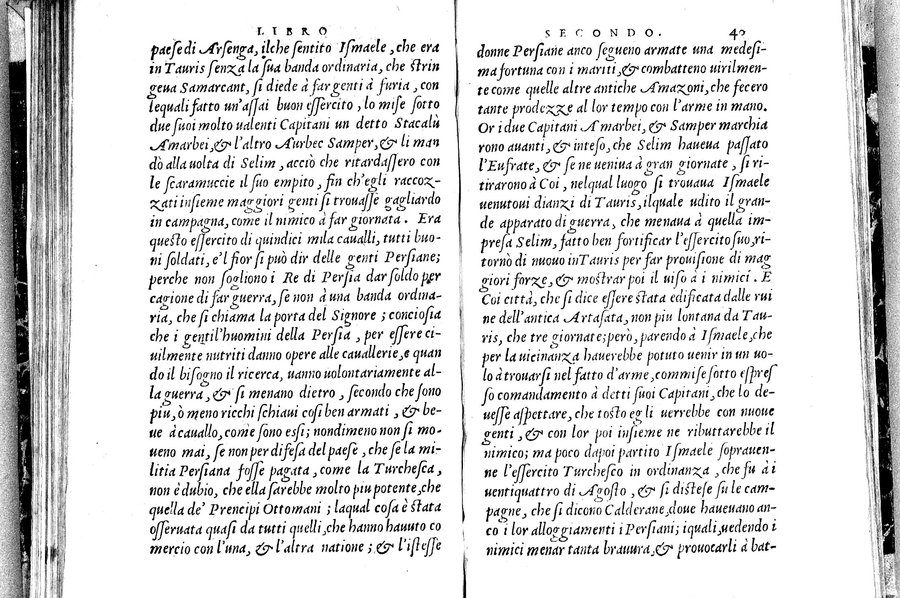 LIBRO
paese di Arsenga, ilche sentito Ismaele, che era
in Tauris senza la sua banda ordinaria, che strin
geua Samarcant, si diede à far genti à furia, con
lequali fatto un'assai buon essercito, lo mise sotto
due suoi molto ualenti Capitani un detto Stacalù
Amarbei, & l'altro Aurbec Samper, & li man
dò alla uolta di Selim, acciò che ritardassero con
le scaramuccie il suo empito, fin ch'egli raccoz-
zati insieme maggiori genti si trouasse gagliardo
in campagna, come il nimico à far giornata. Era
questo essercito di quindici mila caualli, tutti buo-
ni soldati, e'l fior si può dir delle genti Persiane;
perche non sogliono i Re di Persia dar soldo per
cagione di far guerra, se non à una banda ordina-
ria, che si chiama la porta del Signore; conciosia
che i gentil'huomini della Persia, per essere ci-
uilmente nutriti danno opere alle cauallerie, e quan
do il bisogno il ricerca, uanno uolontariamente al-
la guerra, & si menano dietro, secondo che sono
piu, ò meno ricchi schiaui cosi ben armati, & be-
ue à cauallo, come sono essi; nondimeno non si mo-
ueno mai, se non per difesa del paese, che se la mi-
litia Persiana fosse pagata, come la Turchesca,
non è dubio, che ella sarebbe molto piu potente, che
quella de' Prencipi Ottomani; laqual cosa è stata
osseruata quasi da tutti quelli, che hanno hauuto co
mercio con l'una, & l'altra natione; & l'istesse
SECONDO. 40
donne Persiane anco segueno armate una medesi-
ma fortuna con i mariti, & combatteno uirilmen-
te come quelle altre antiche Amazoni, che fecero
tante prodezze al lor tempo con l'arme in mano.
Or i due Capitani Amarbei, & Samper marchia
rono auanti, & inteso, che Selim haueua passato
l'Eufrate, & se ne ueniua à gran giornate, si ri-
tirarono à Coi, nelqual luogo si trouaua Ismaele
uenutoui dianzi di Tauris, ilquale udito il gran-
de apparato di guerra, che menaua à quella im-
presa Selim, fatto ben fortificar l'essercito suo, ri-
tornò di nuouo in Tauris per far prouisione di mag
giori forze, & mostrar poi il uiso à i nimici. E
Coi città, che si dice essere stata edificata dalle rui
ne dell'antica Artasata, non piu lontana da Tau-
ris, che tre giornate; però, parendo à Ismaele, che
per la uicinanza hauerebbe potuto uenir in un uo-
lo à trouarsi nel fatto d'arme, commise sotto espres
so comandamento à detti suoi Capitani, che lo de-
uesse aspettare, che tosto egli uerrebbe con nuoue
genti, & con lor poi insieme ne ributtarebbe il
nimico; ma poco dapoi partito Ismaele soprauen-
ne l'essercito Turchesco in ordinanza, che fu à i
uentiquattro di Agosto, & si distese su le cam-
pagne, che si dicono Calderane, doue haueuano an-
co i lor alloggiamenti i Persiani; iquali, uedendo i
nimici menar tanta brauura, & prouocarli à bat-